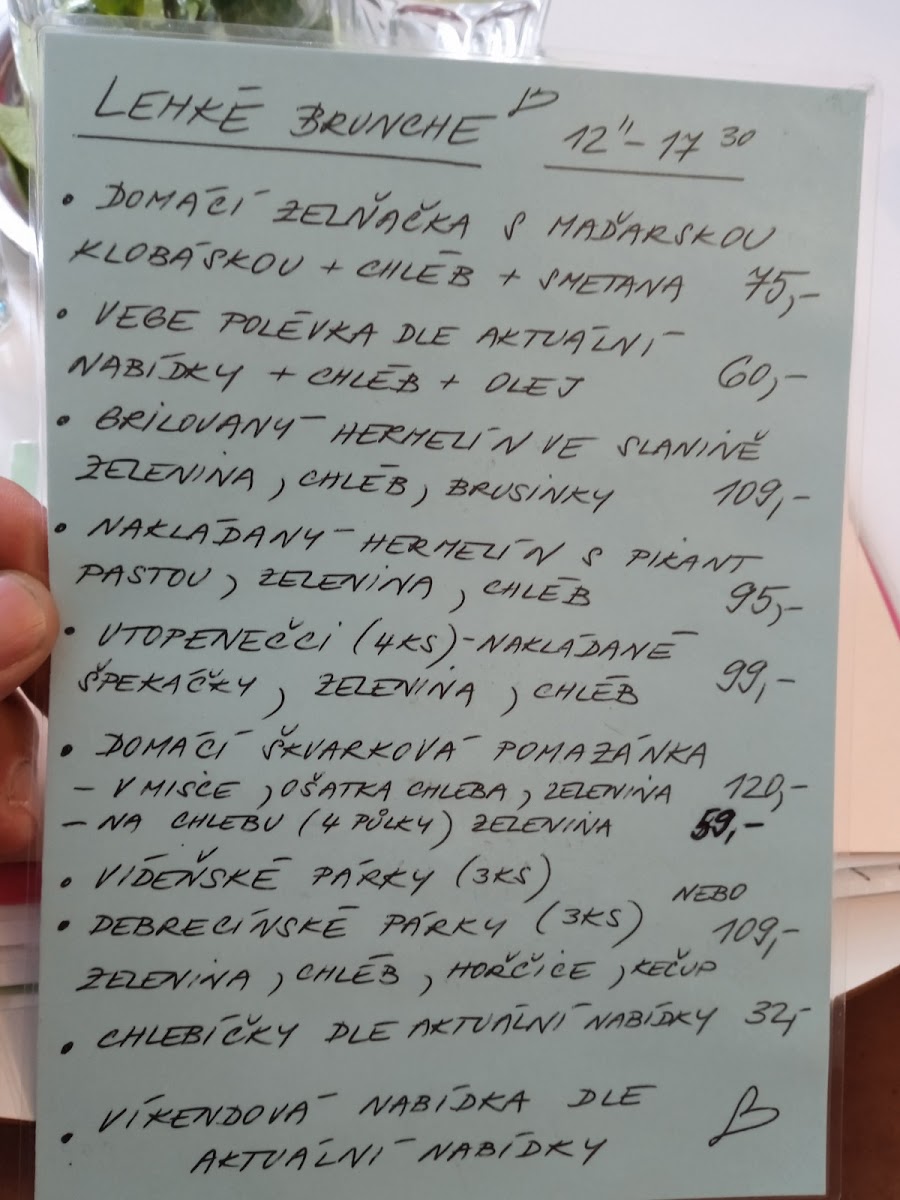 LEHKÉ BRUNCHE 12" - 17 30
• DOMÁCÍ ZELŇAČKA S MAĎARSKOU
KLOBÁSKOU + CHLÉB + SMETANA 75,-
• VEGE POLÉVKA DLE AKTUÁLNÍ
NABÍDKY + CHLÉB + OLEJ 60,-
• GRILOVANÝ HERMELÍN VE SLANINĚ
ZELENINA, CHLÉB, BRUSINKY 109,-
• NAKLÁDANÝ HERMELÍN S PIKANT
PASTOU, ZELENINA, CHLÉB 95,-
• UTOPENEČCI (4KS)-NAKLÁDANÉ
ŠPEKÁČKY, ZELENINA, CHLÉB 99,-
• DOMÁCÍ ŠKVARKOVÁ POMAZÁNKA
- V MISCE, OŠATKA CHLEBA, ZELENINA 120,-
- NA CHLEBU (4 PŮLKY) ZELENINA 59,-
• VÍDEŇSKÉ PÁRKY (3KS) NEBO
• DEBRECÍNSKÉ PÁRKY (3KS) 109,-
ZELENINA, CHLÉB, HOŘČICE, KEČUP
• CHLEBÍČKY DLE AKTUÁLNÍ NABÍDKY 32,-
• VÍKENDOVÁ NABÍDKA DLE
AKTUÁLNÍ NABÍDKY